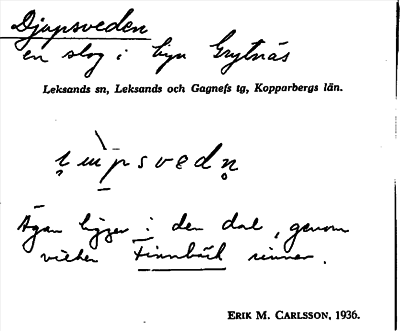 Djupsveden
en skog i byn Grytnäs
Leksands sn, Leksands och Gagnefs tg, Kopparbergs län.
psvedn̥
Ägan ligger i den dal, genom
vilken Finnbäck rinner.
ERIK M. CARLSSON, 1936.